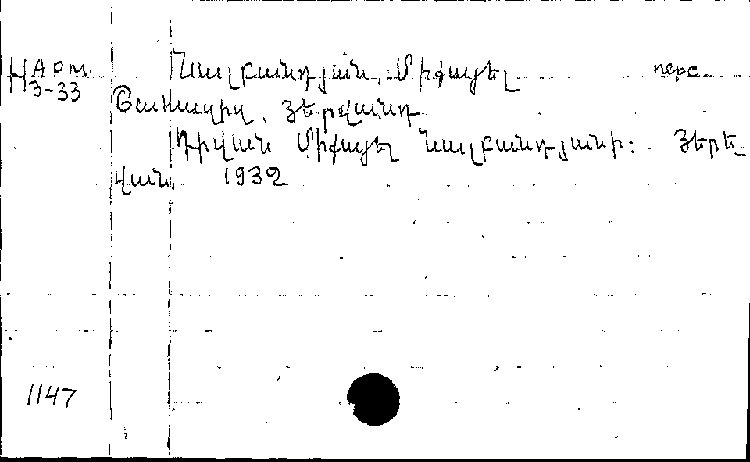 НАрм Նալբանդյան, Միքայել перс.
3-33
Շահազիզ, Յերվանդ
Դիվան Միքայել Նալբանդյանի: Յերե-
վան, 1932
1147